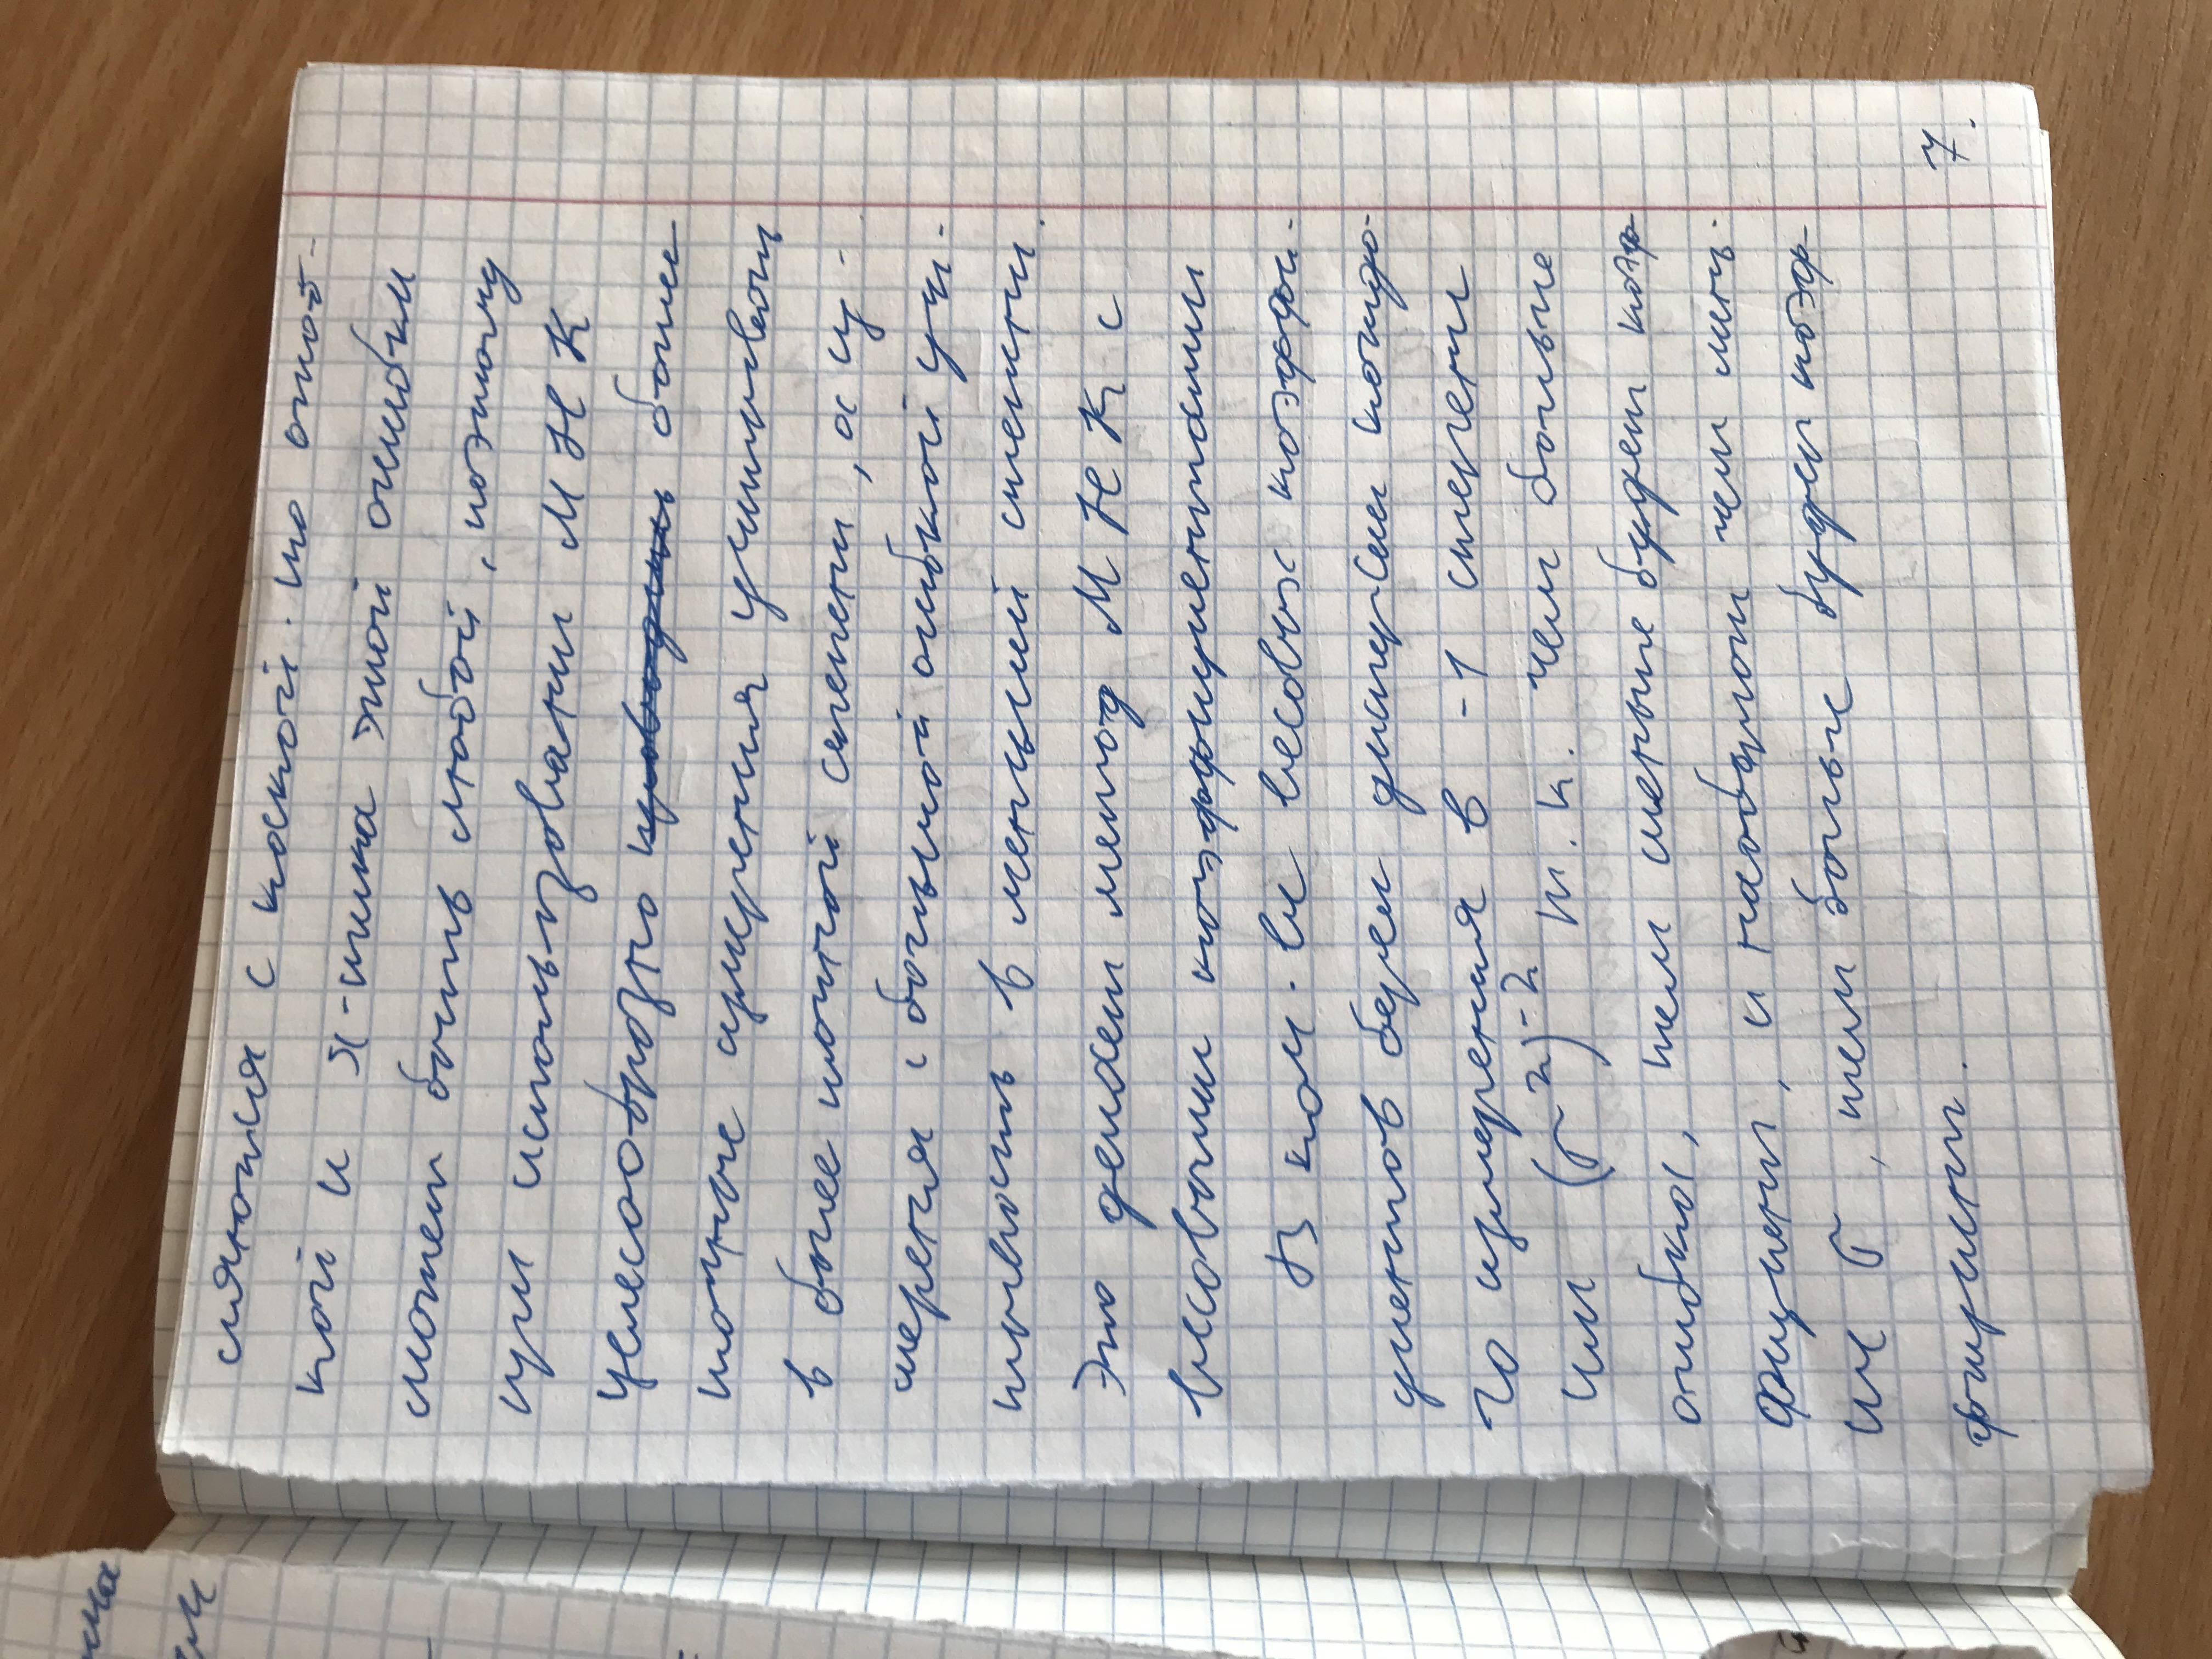 ма
ем
сляются с какой-то ошиб-
кой и х-тика этой ошибки
может быть любой, поэтому
при использовании МНК
целесообразно проводить более
точные измерения учитывать
в более точной степени, а из-
мерения с большой ошибкой учи-
тывать в меньшей степени.
Это делает метод МНК с
весовыми коэффициентами
В кол-ве весовых коэффи-
циентов берем дисперсии каждо-
го измерения в -1 степени
или (σ²)⁻² т.к. чем больше
ошибка, тем меньше будет коэф-
фициент, и наоборот чем мень-
ше σ, тем больше будет коэф-
фициент.
7.